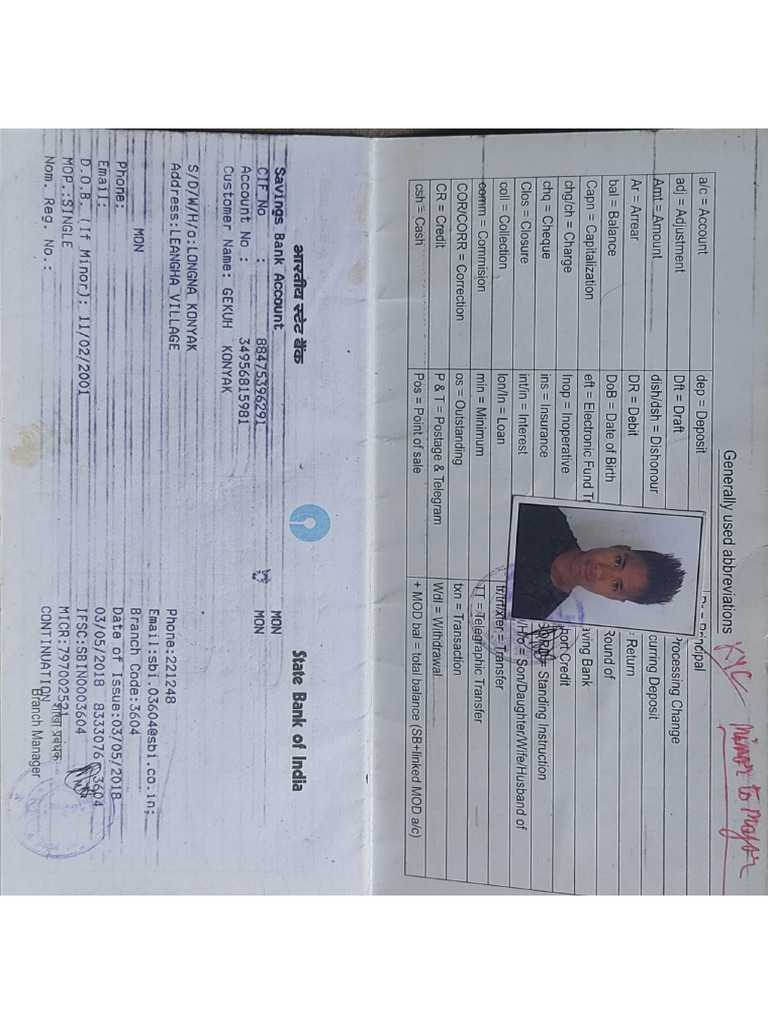 KYC Minor to Major
Generally used abbreviations
a/c = Account dep = Deposit Principal
adj = Adjustment Dft = Draft Processing Change
Amt = Amount dish/dsh = Dishonour curring Deposit
Ar = Arrear DR = Debit : Return
bal = Balance DoB = Date of Birth Round of
Capn = Capitalization eft = Electronic Fund Tr aving Bank
chg/ch = Charge Inop = Inoperative ort Credit
chq = Cheque ins = Insurance = Standing Instruction
Clos = Closure int/in = Interest /H/o = Son/Daughter/Wife/Husband of
coll = Collection lon/ln = Loan tr/trf/xfer = Transfer
comm = Commision min = Minimum TT = Telegraphic Transfer
COR/CORR = Correction os = Outstanding txn = Transaction
CR = Credit P & T = Postage & Telegram Wdl = Withdrawal
csh = Cash Pos = Point of sale + MOD bal = total balance (SB+linked MOD a/c)
भारतीय स्टेट बैंक State Bank of India
Savings Bank Account MON
CIF No : 88475396291 MON
Account No : 34956815981
Customer Name: GEKUH KONYAK
S/D/W/H/o:LONGNA KONYAK
Address:LEANGHA VILLAGE Phone:221248
Email:sbi.03604@sbi.co.in:
MON Branch Code:3604
Phone: Date of Issue:03/05/2018
Email: 03/05/2018 8333076 3604
D.O.B. (If Minor): 11/02/2001 IFSC:SBIN0003604
MOP.:SINGLE MICR:797002521
Nom. Reg. No.: CONTINUATION
शाखा प्रबंधक
Branch Manager